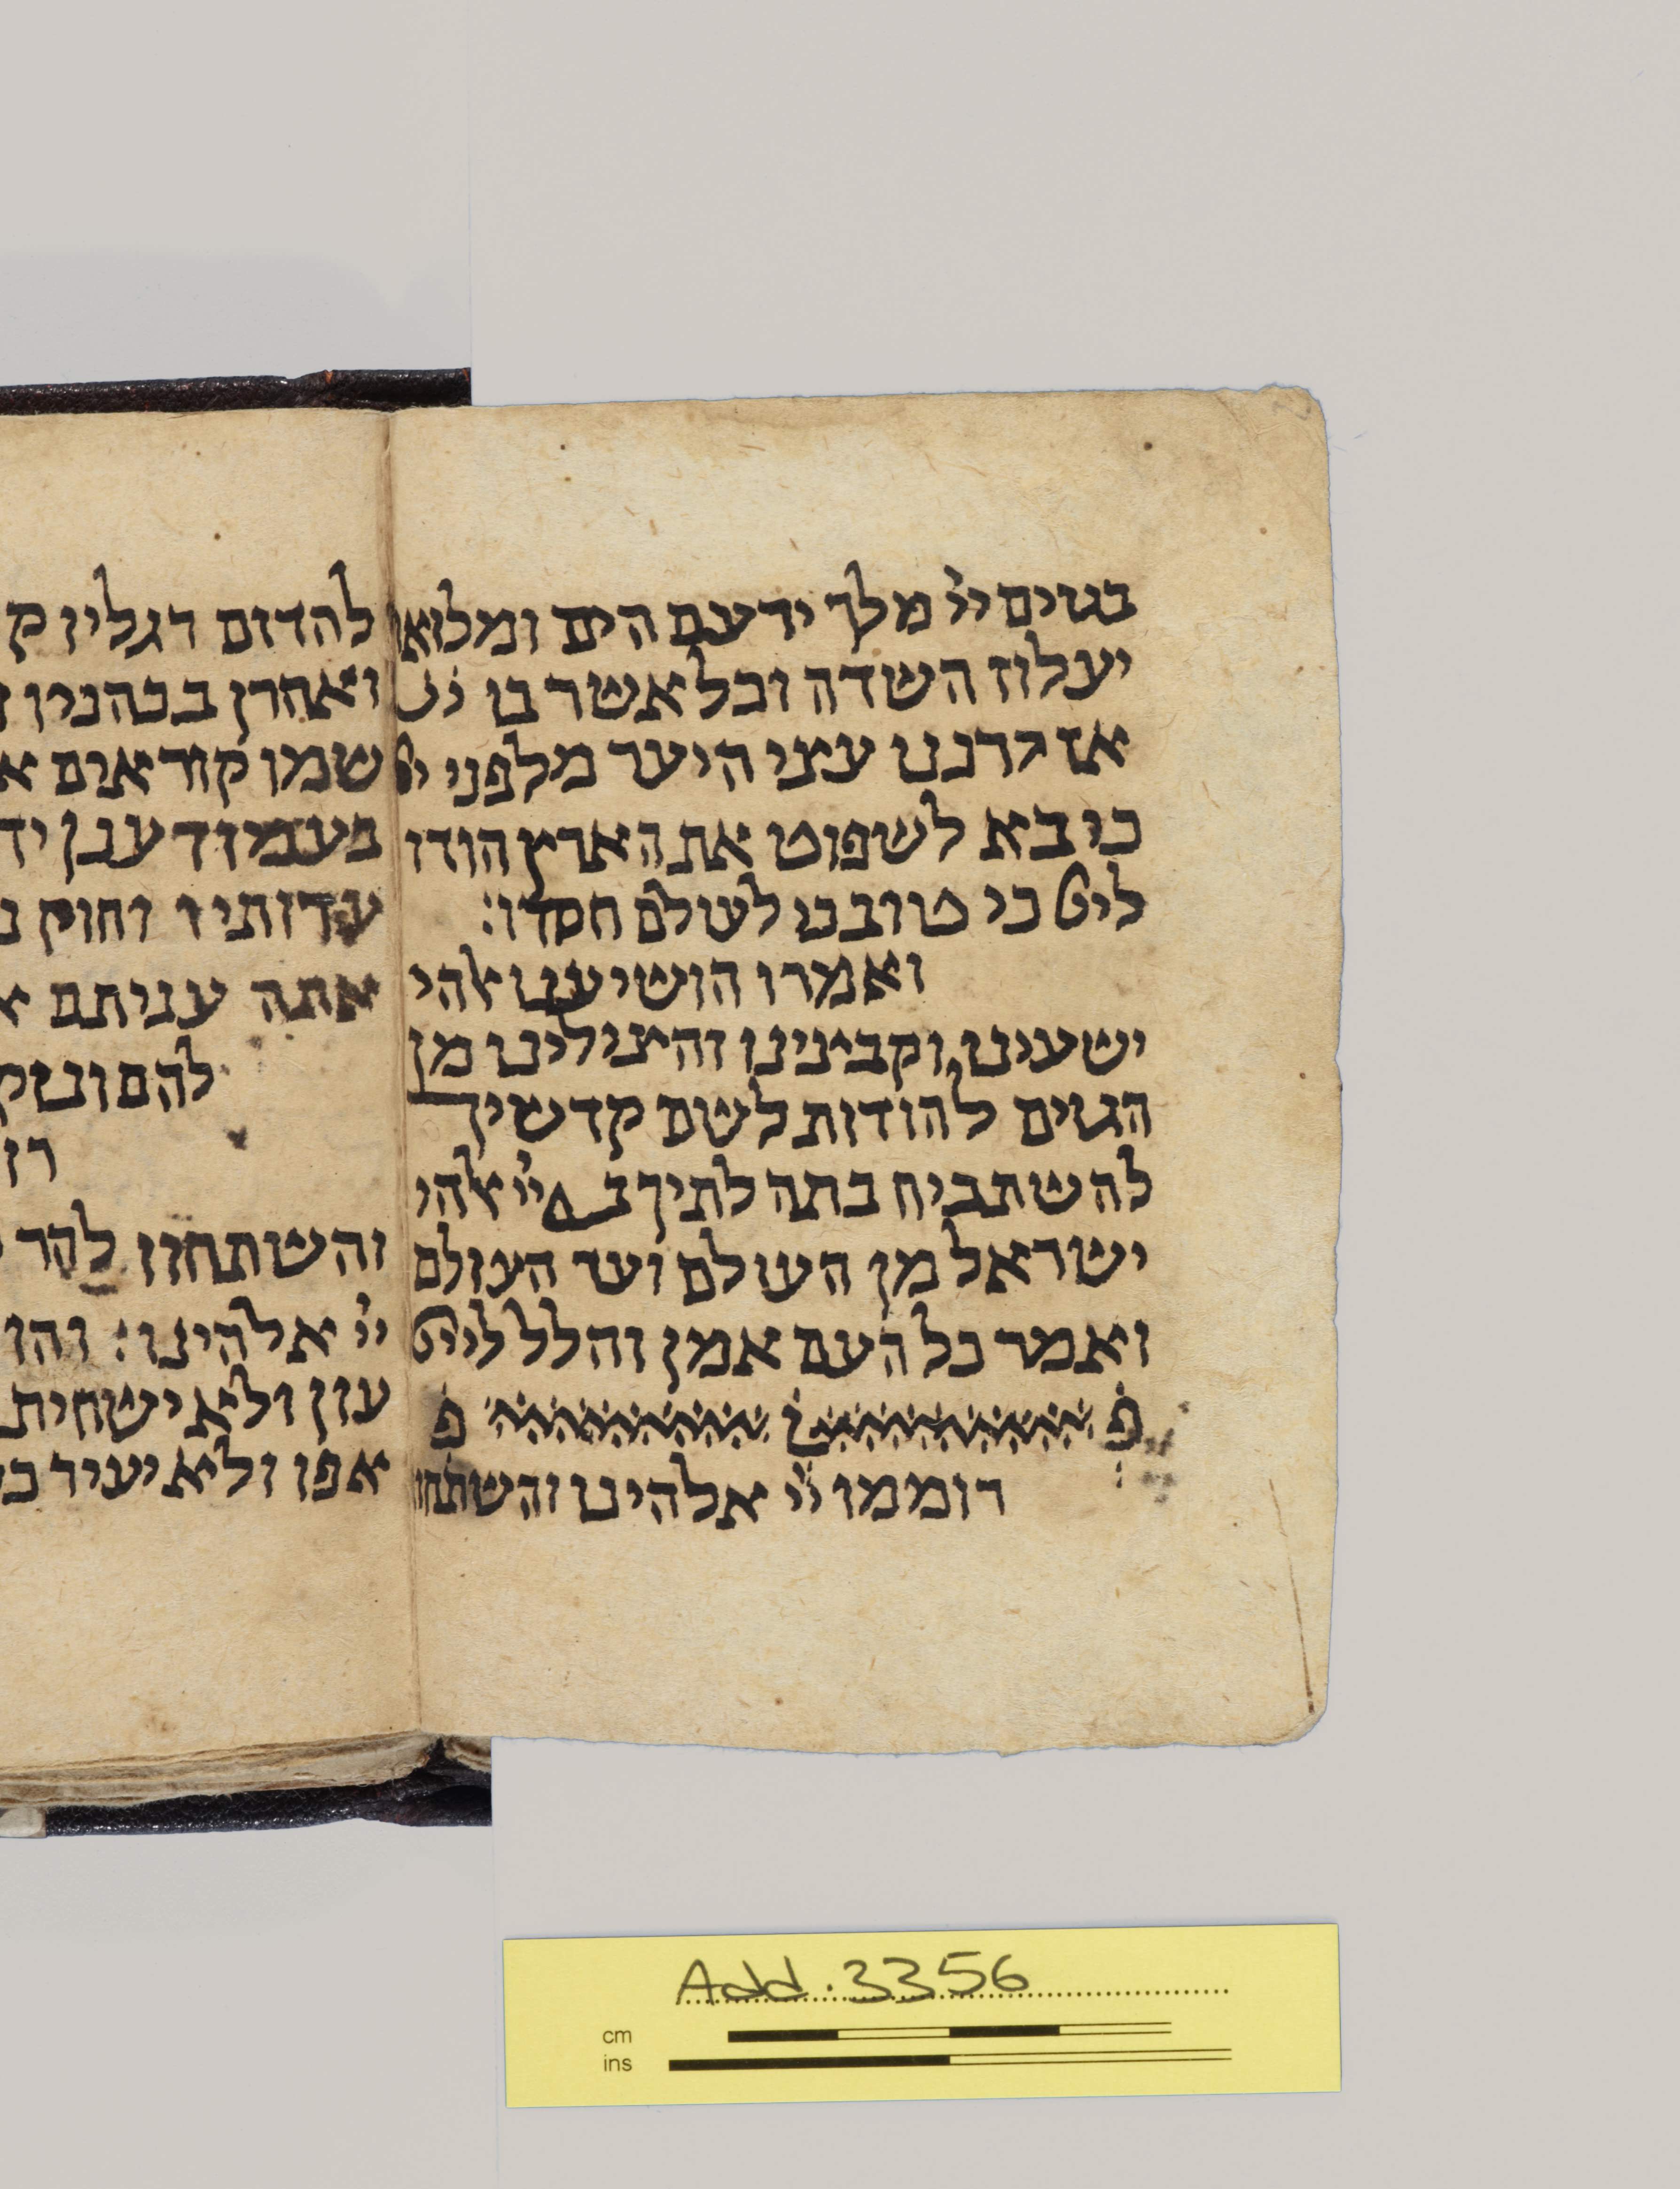 בגוים ייי מלך ירעם הים ומלואו
יעלוז השדה וכל אשר בו
אז ירננו עצי היער מלפני
כי בא לשפוט את הארץ הודו
לייי כי טוב כי לעולם חסדו:
ואמרו הושיענו אלהי
ישעינו וקבצינו והצילינו מן
הגוים להודות לשם קדשיך
להשתביח בתהלתיך ב ייי אלהי
ישראל מן העולם ועד העולם
ואמר כל העם אמן והלל לייי
פ פ
רוממו ייי אלהינו והשתחוו
להדום רגליו ק
ואהרן בכהניו
שמו קוראים א
בעמוד ענן יד
עדותיו וחוק נ
אתה עניתם א
להם ונוק
רו
והשתחוו להר
ייי אלהינו: והו
עון ולא ישחית
אפו ולא יעיר כ
Add. 3356
cm
ins